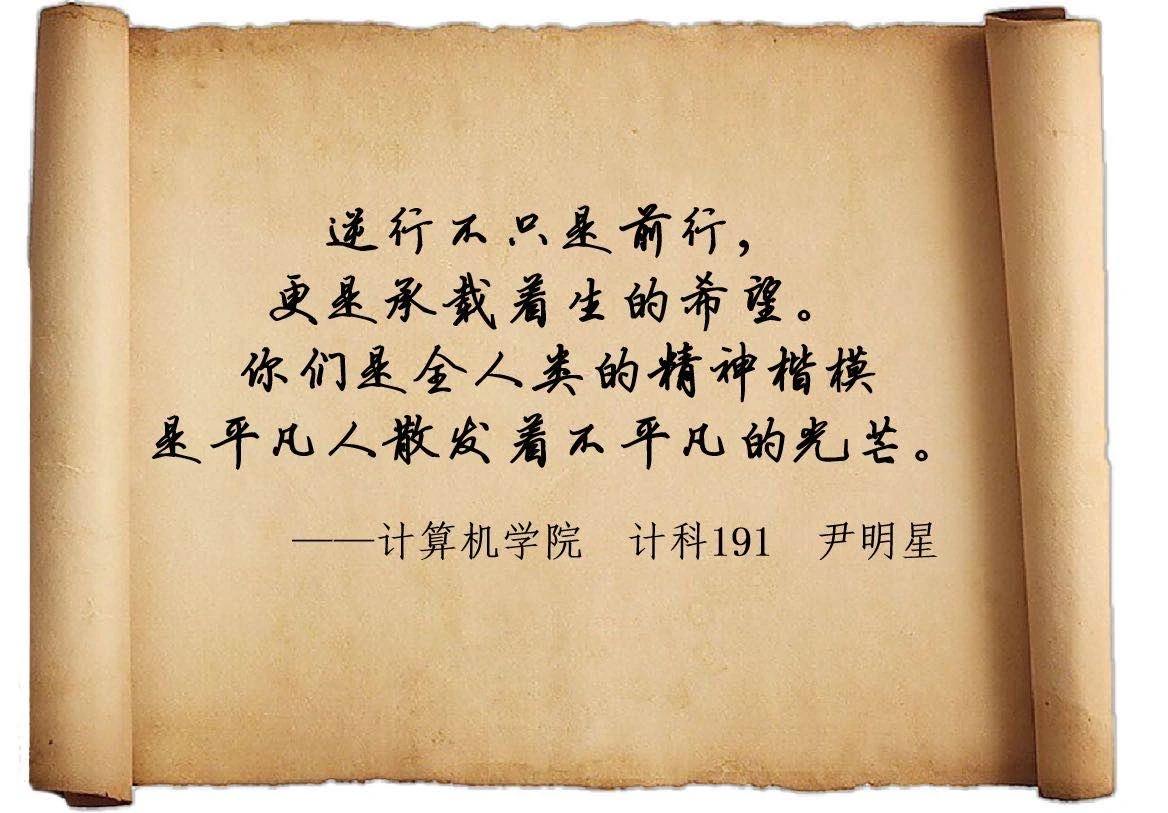 逆行不只是前行，
更是承载着生的希望。
你们是全人类的精神楷模
是平凡人散发着不平凡的光芒。
——计算机学院　计科191　尹明星